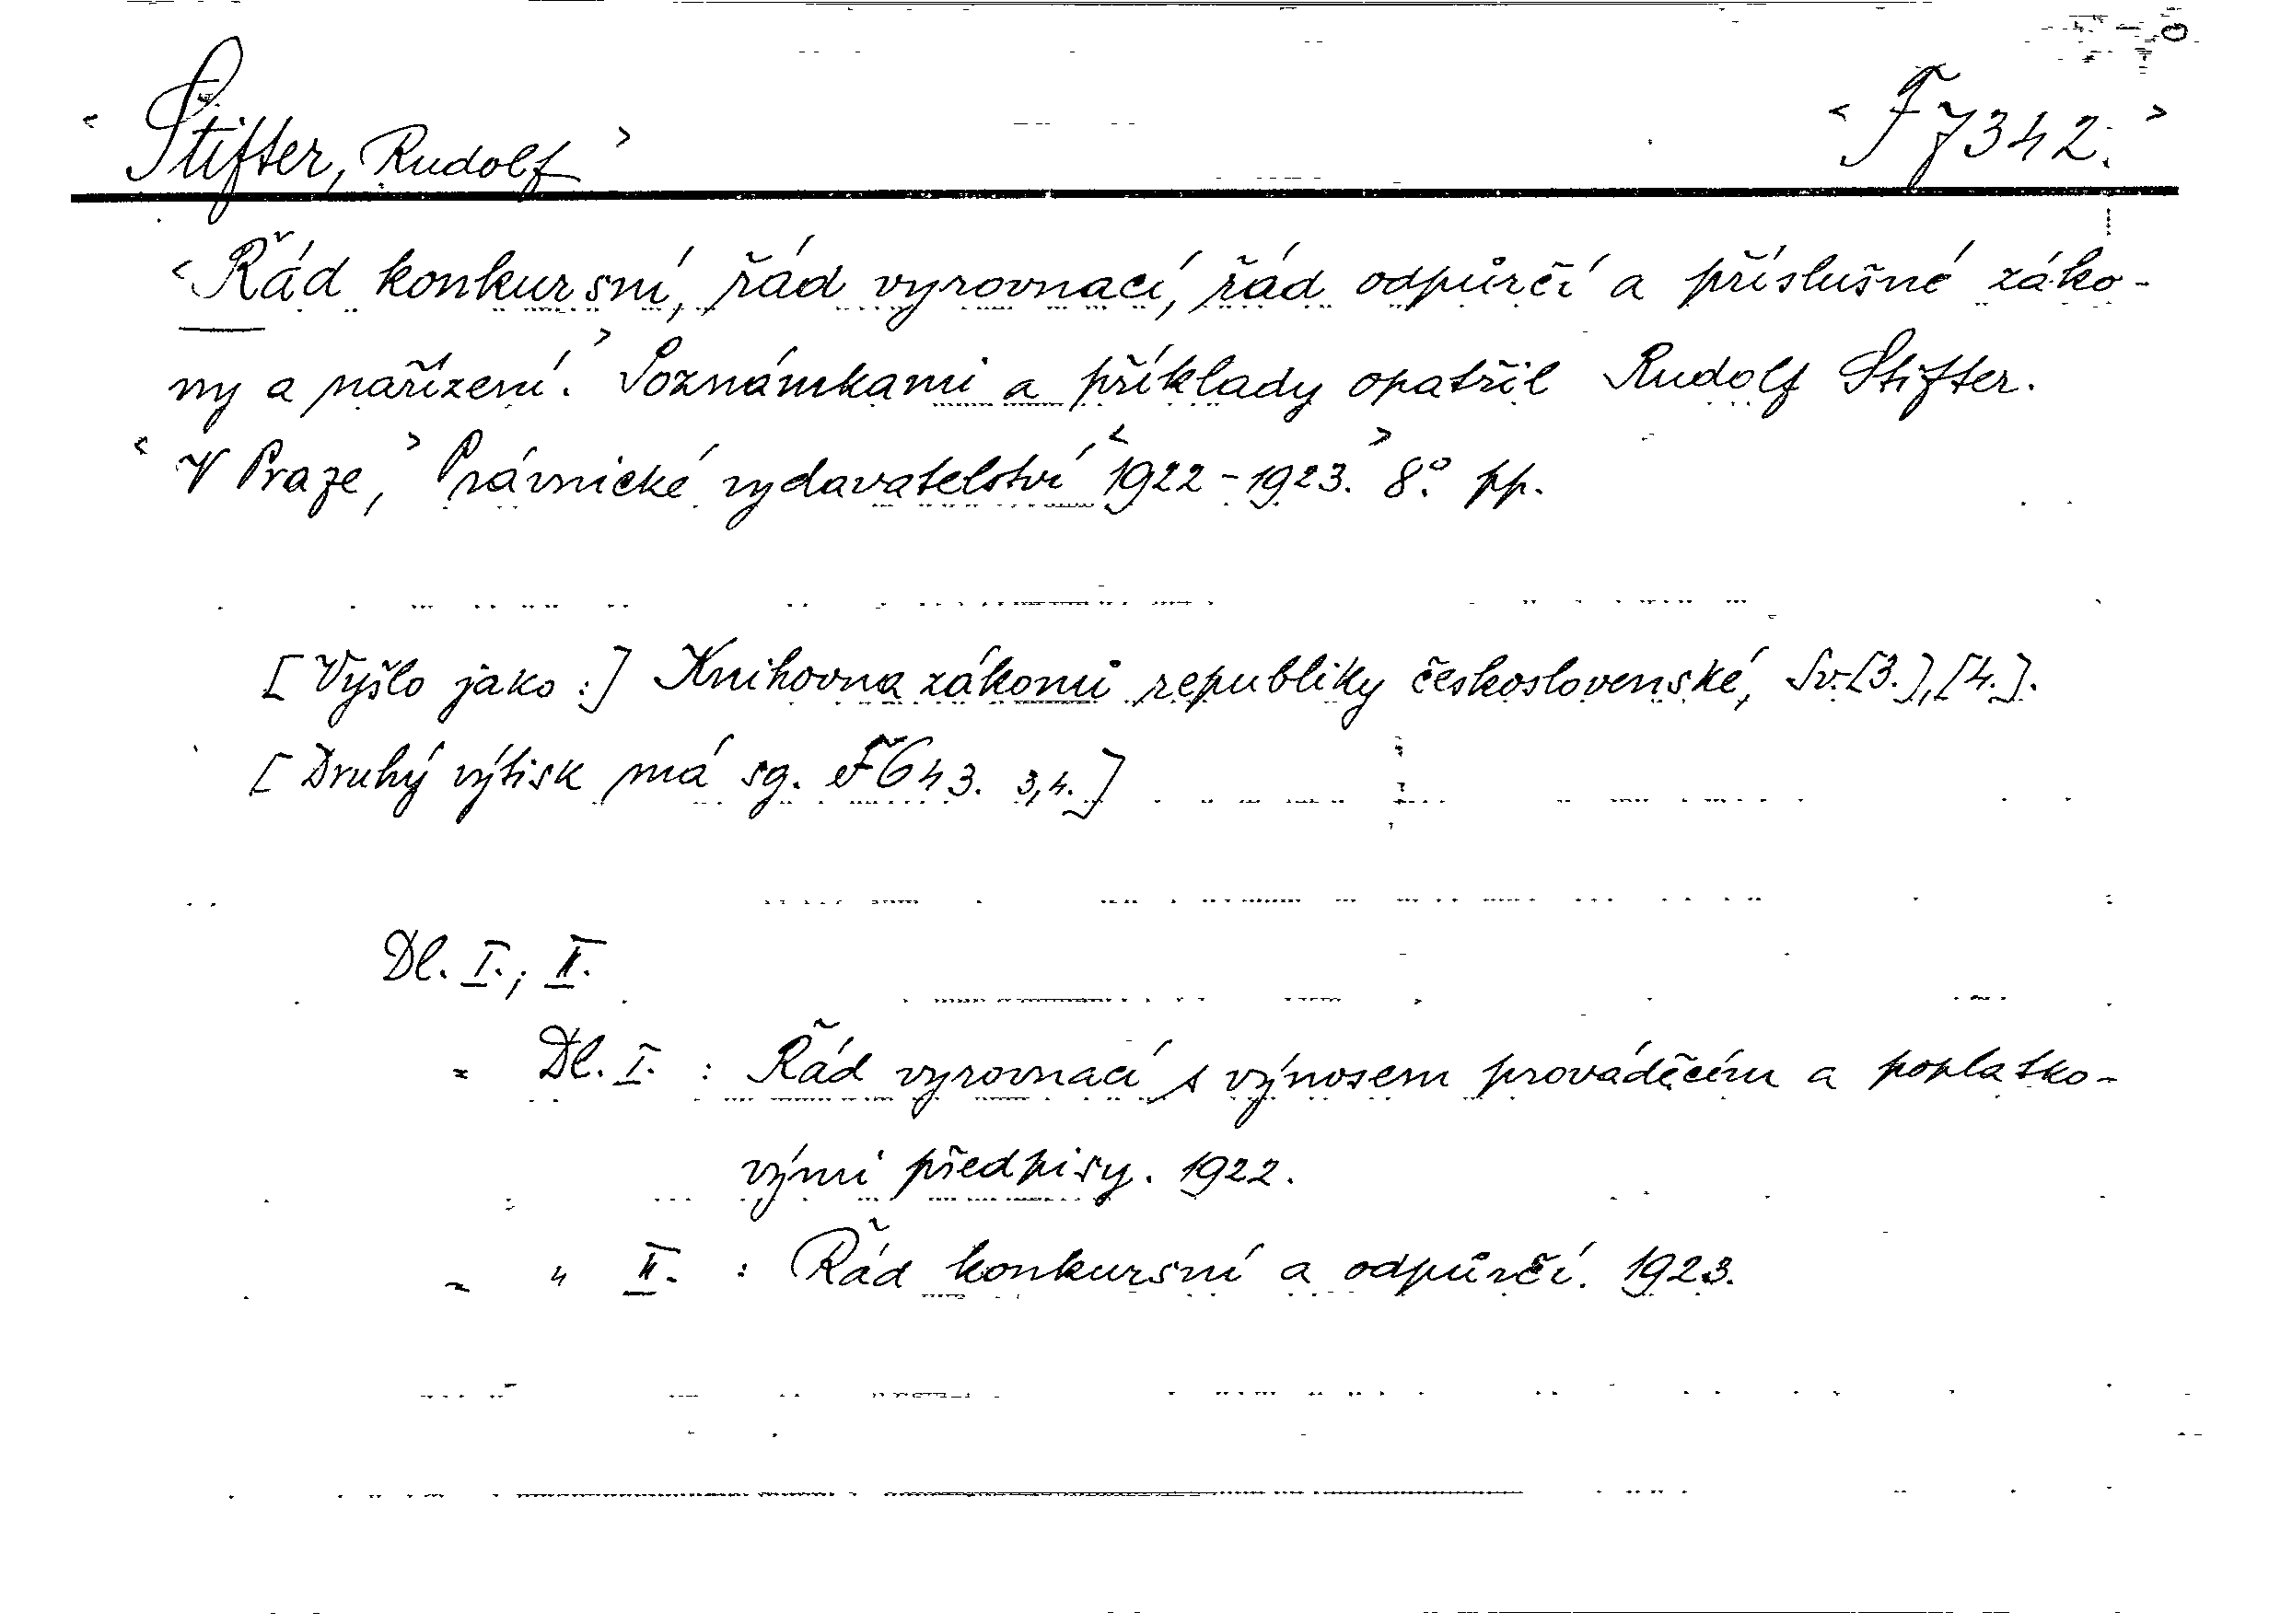 < Stifter, Rudolf > < F 7342. >
< Řád konkursní, řád vyrovnací, řád odpůrčí a příslušné záko-
ny a nařízení. > Poznámkami a příklady opatřil Rudolf Stifter.
< V Praze, > Právnické vydavatelství < 1922-1923. > 8°. pp.
[Vyšlo jako:] Knihovna zákonů republiky československé, Sv. [3.], [4.].
[Druhý výtisk má sg. F 643. 3,4.]
Dl. I., II.
= Dl. I. : Řád vyrovnací s výnosem prováděcím a poplatko-
vými předpisy. 1922.
= " II. : Řád konkursní a odpůrčí. 1923.